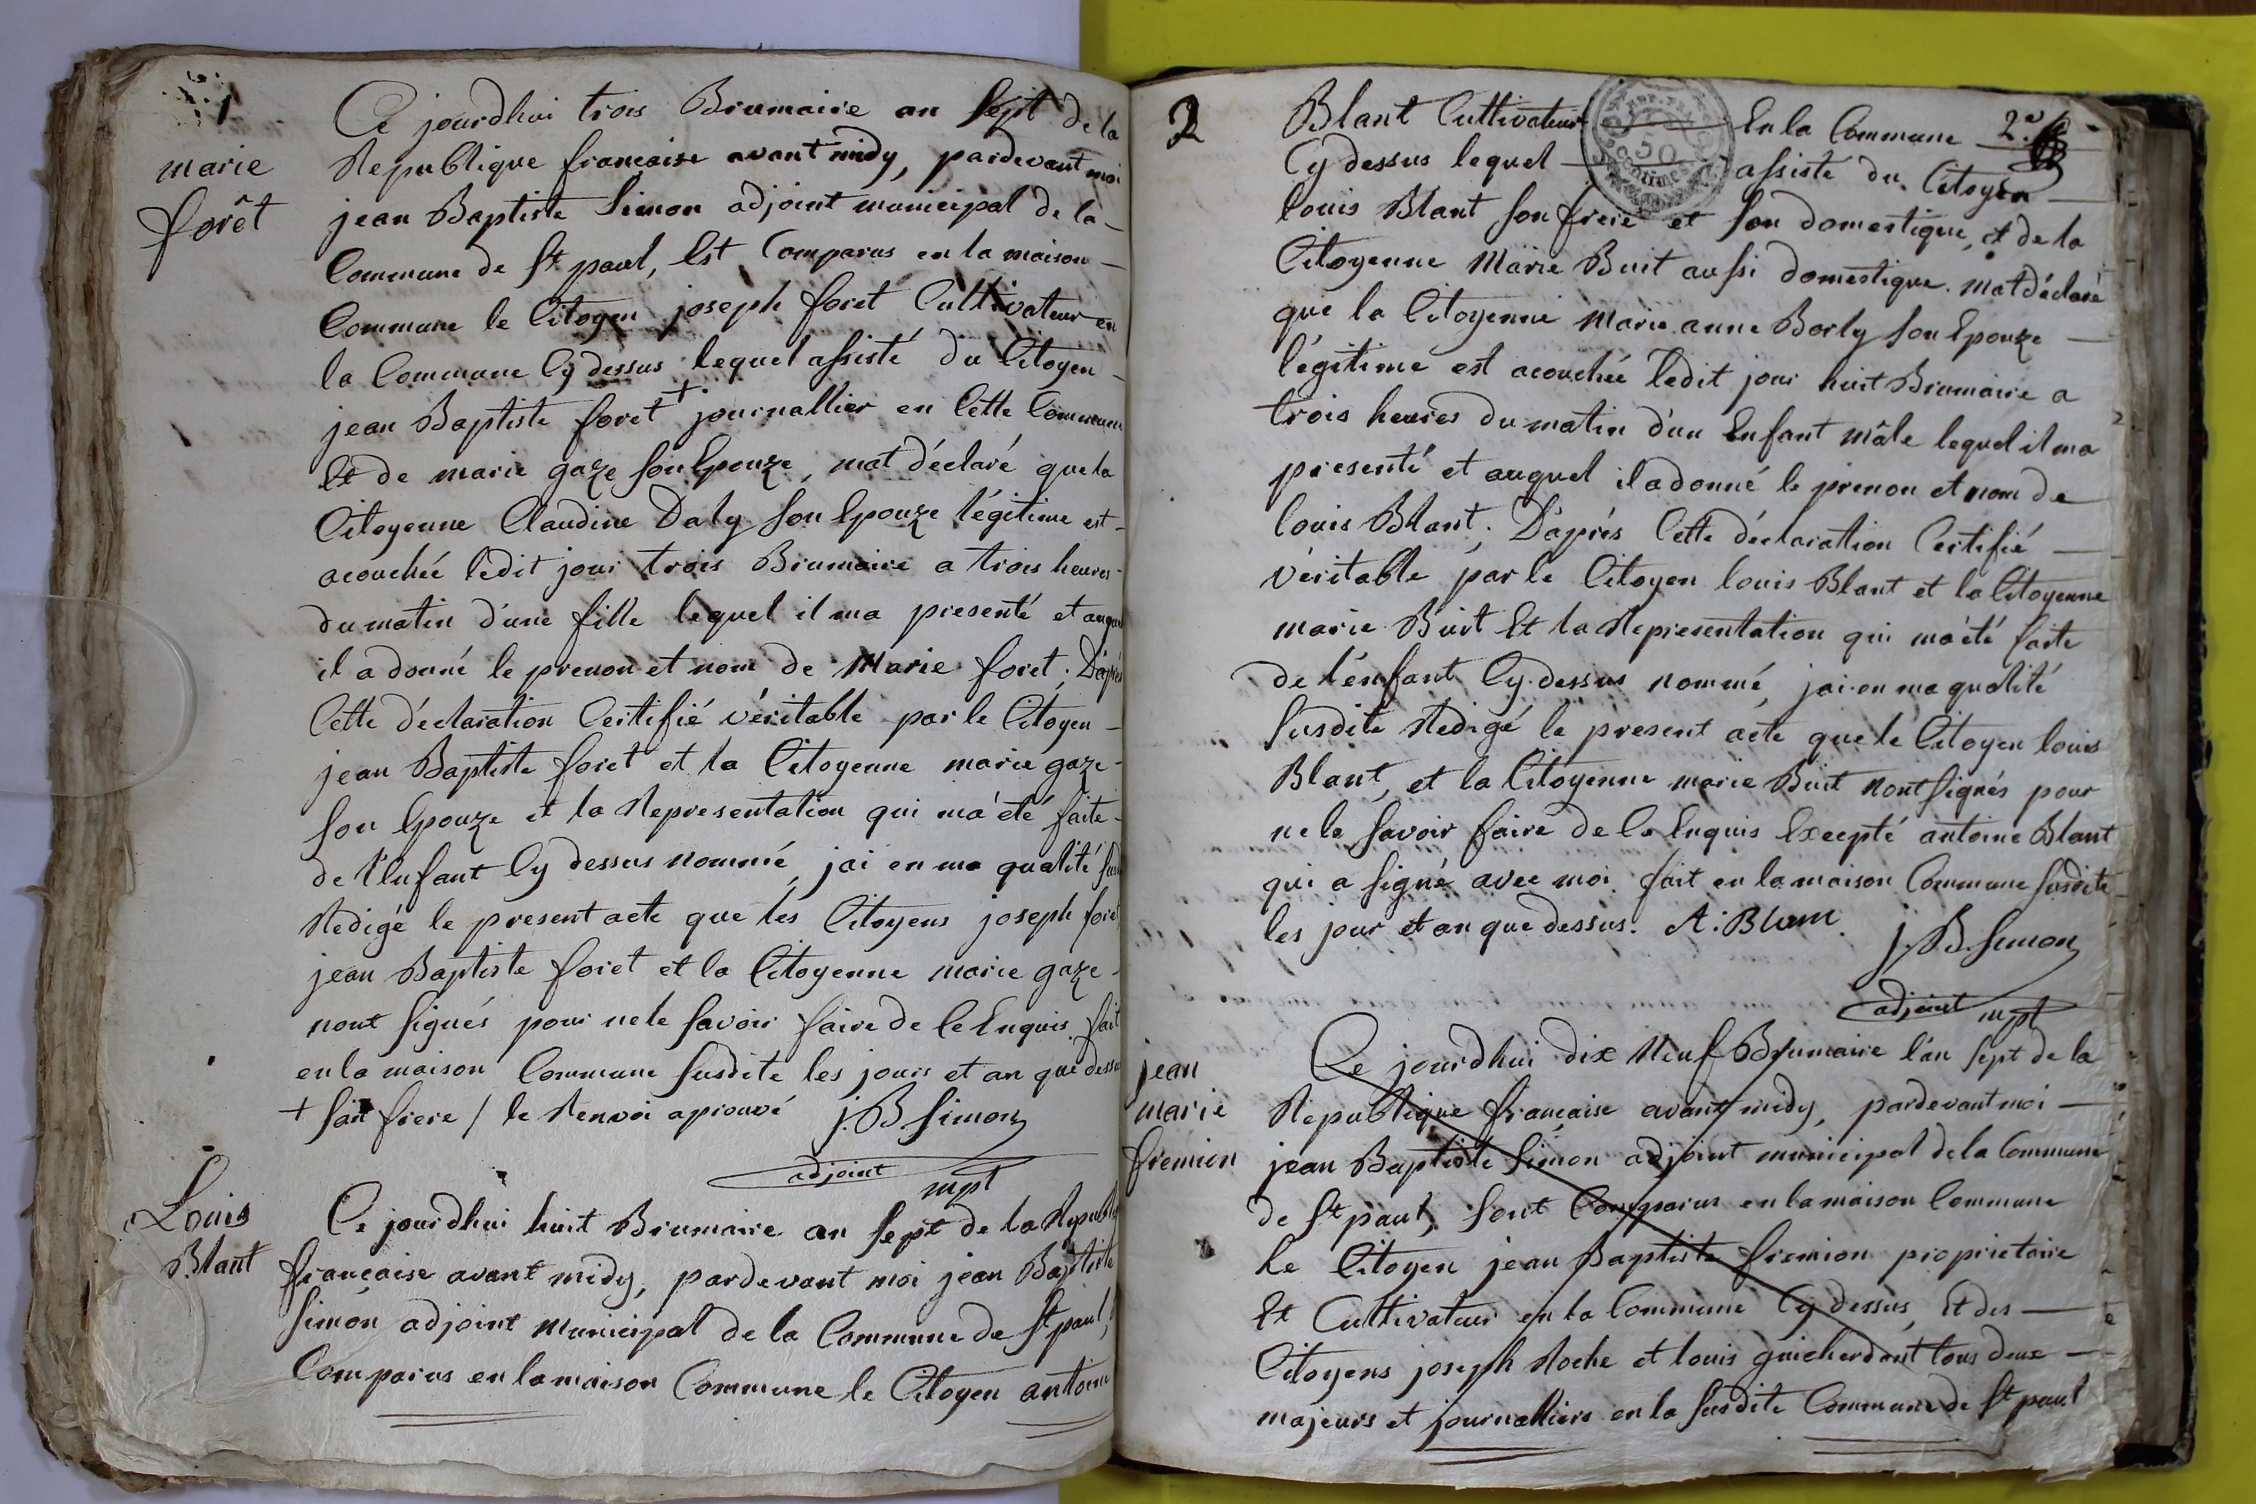 1
marie
forêt
Ce jourdhui trois Brumaire an Sept de la
Republique française avant midy, pardevant moi
jean Baptiste Simon adjoint municipal de la
Commune de St paul, Est Comparus en la maison
Commune le Citoyen joseph foret Cultivateur en
la Commune Cy dessus lequel assisté du Citoyen
jean Baptiste foret + journallier en Cette Commune
Et de marie gaze son Epouze, mat déclaré que la
Citoyenne Claudine Daly son Epouze légitime est
acouchée ledit jour trois Brumaire a trois heures
du matin d'une fille lequel il ma presenté et auquel
il a donné le prenon et nom de Marie foret; D'après
Cette déclaration Certifié véritable par le Citoyen
jean Baptiste foret et la Citoyenne marie gaze
son Epouze et la Representation qui ma été faite
de l'Enfant Cy dessus nommé, jai en ma qualité
Redigé le present acte que les Citoyens joseph foret
jean Baptiste foret et la Citoyenne marie gaze
nont signés pour ne le savoir faire de Ce Enquis. fait
en la maison Commune susdite les jours et an que dessus
+ son frere / le Renvoi aprouvé J. B. Simon
adjoint mpl
Louis
Blant
Ce jourdhui huit Brumaire an sept de la Republ
française avant midy, pardevant moi jean Baptiste
Simon adjoint Municipal de la Commune de St paul,
Comparus en la maison Commune le Citoyen antoine
2
2.e
Blant Cultivateur En la Commune
50
Centimes
Cy dessus lequel assisté du Citoyen
louis Blant son frere et son domestique, et de la
Citoyenne Marie Buit aussi domestique. Mat déclaré
que la Citoyenne Marie anne Borly son Epouze
légitime est acouchée ledit jour huit Brumaire a
trois heures du matin d'un Enfant mâle lequel il ma
presenté et auquel il a donné le prenon et nom de
louis Blant; D'après Cette déclaration Certifié
véritable par le Citoyen louis Blant et la Citoyenne
marie Buit Et la Representation qui ma été faite
de l'enfant Cy dessus nommé, jai en ma qualité
susdite Redigé le present acte que le Citoyen louis
Blant, et la Citoyenne marie Buit nont signés pour
ne le savoir faire de Ce Enquis Excepté antoine Blant
qui a signé avec moi. fait en la maison Commune susdite
les jour et an que dessus. A. Blant. J. B. Simon
adjoint mpl
jean
marie
fremion
Ce jourdhui dix Neuf Brumaire l'an sept de la
Republique française avant midy, pardevant moi
jean Baptiste Simon adjoint municipal de la Commune
de St paul, sont Comparus en la maison Commune
Le Citoyen jean Baptiste fremion proprietaire
Et Cultivateur en la Commune Cy dessus, Et des
Citoyens joseph Roche et louis guicherdant tous deux
majeurs et journalliers en la susdite Commune de St paul